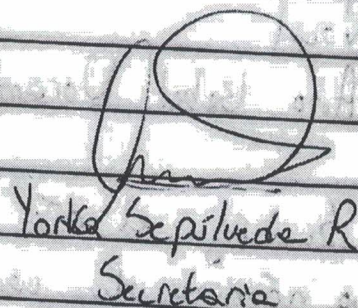 Yorka Sepúlveda R
Secretaria